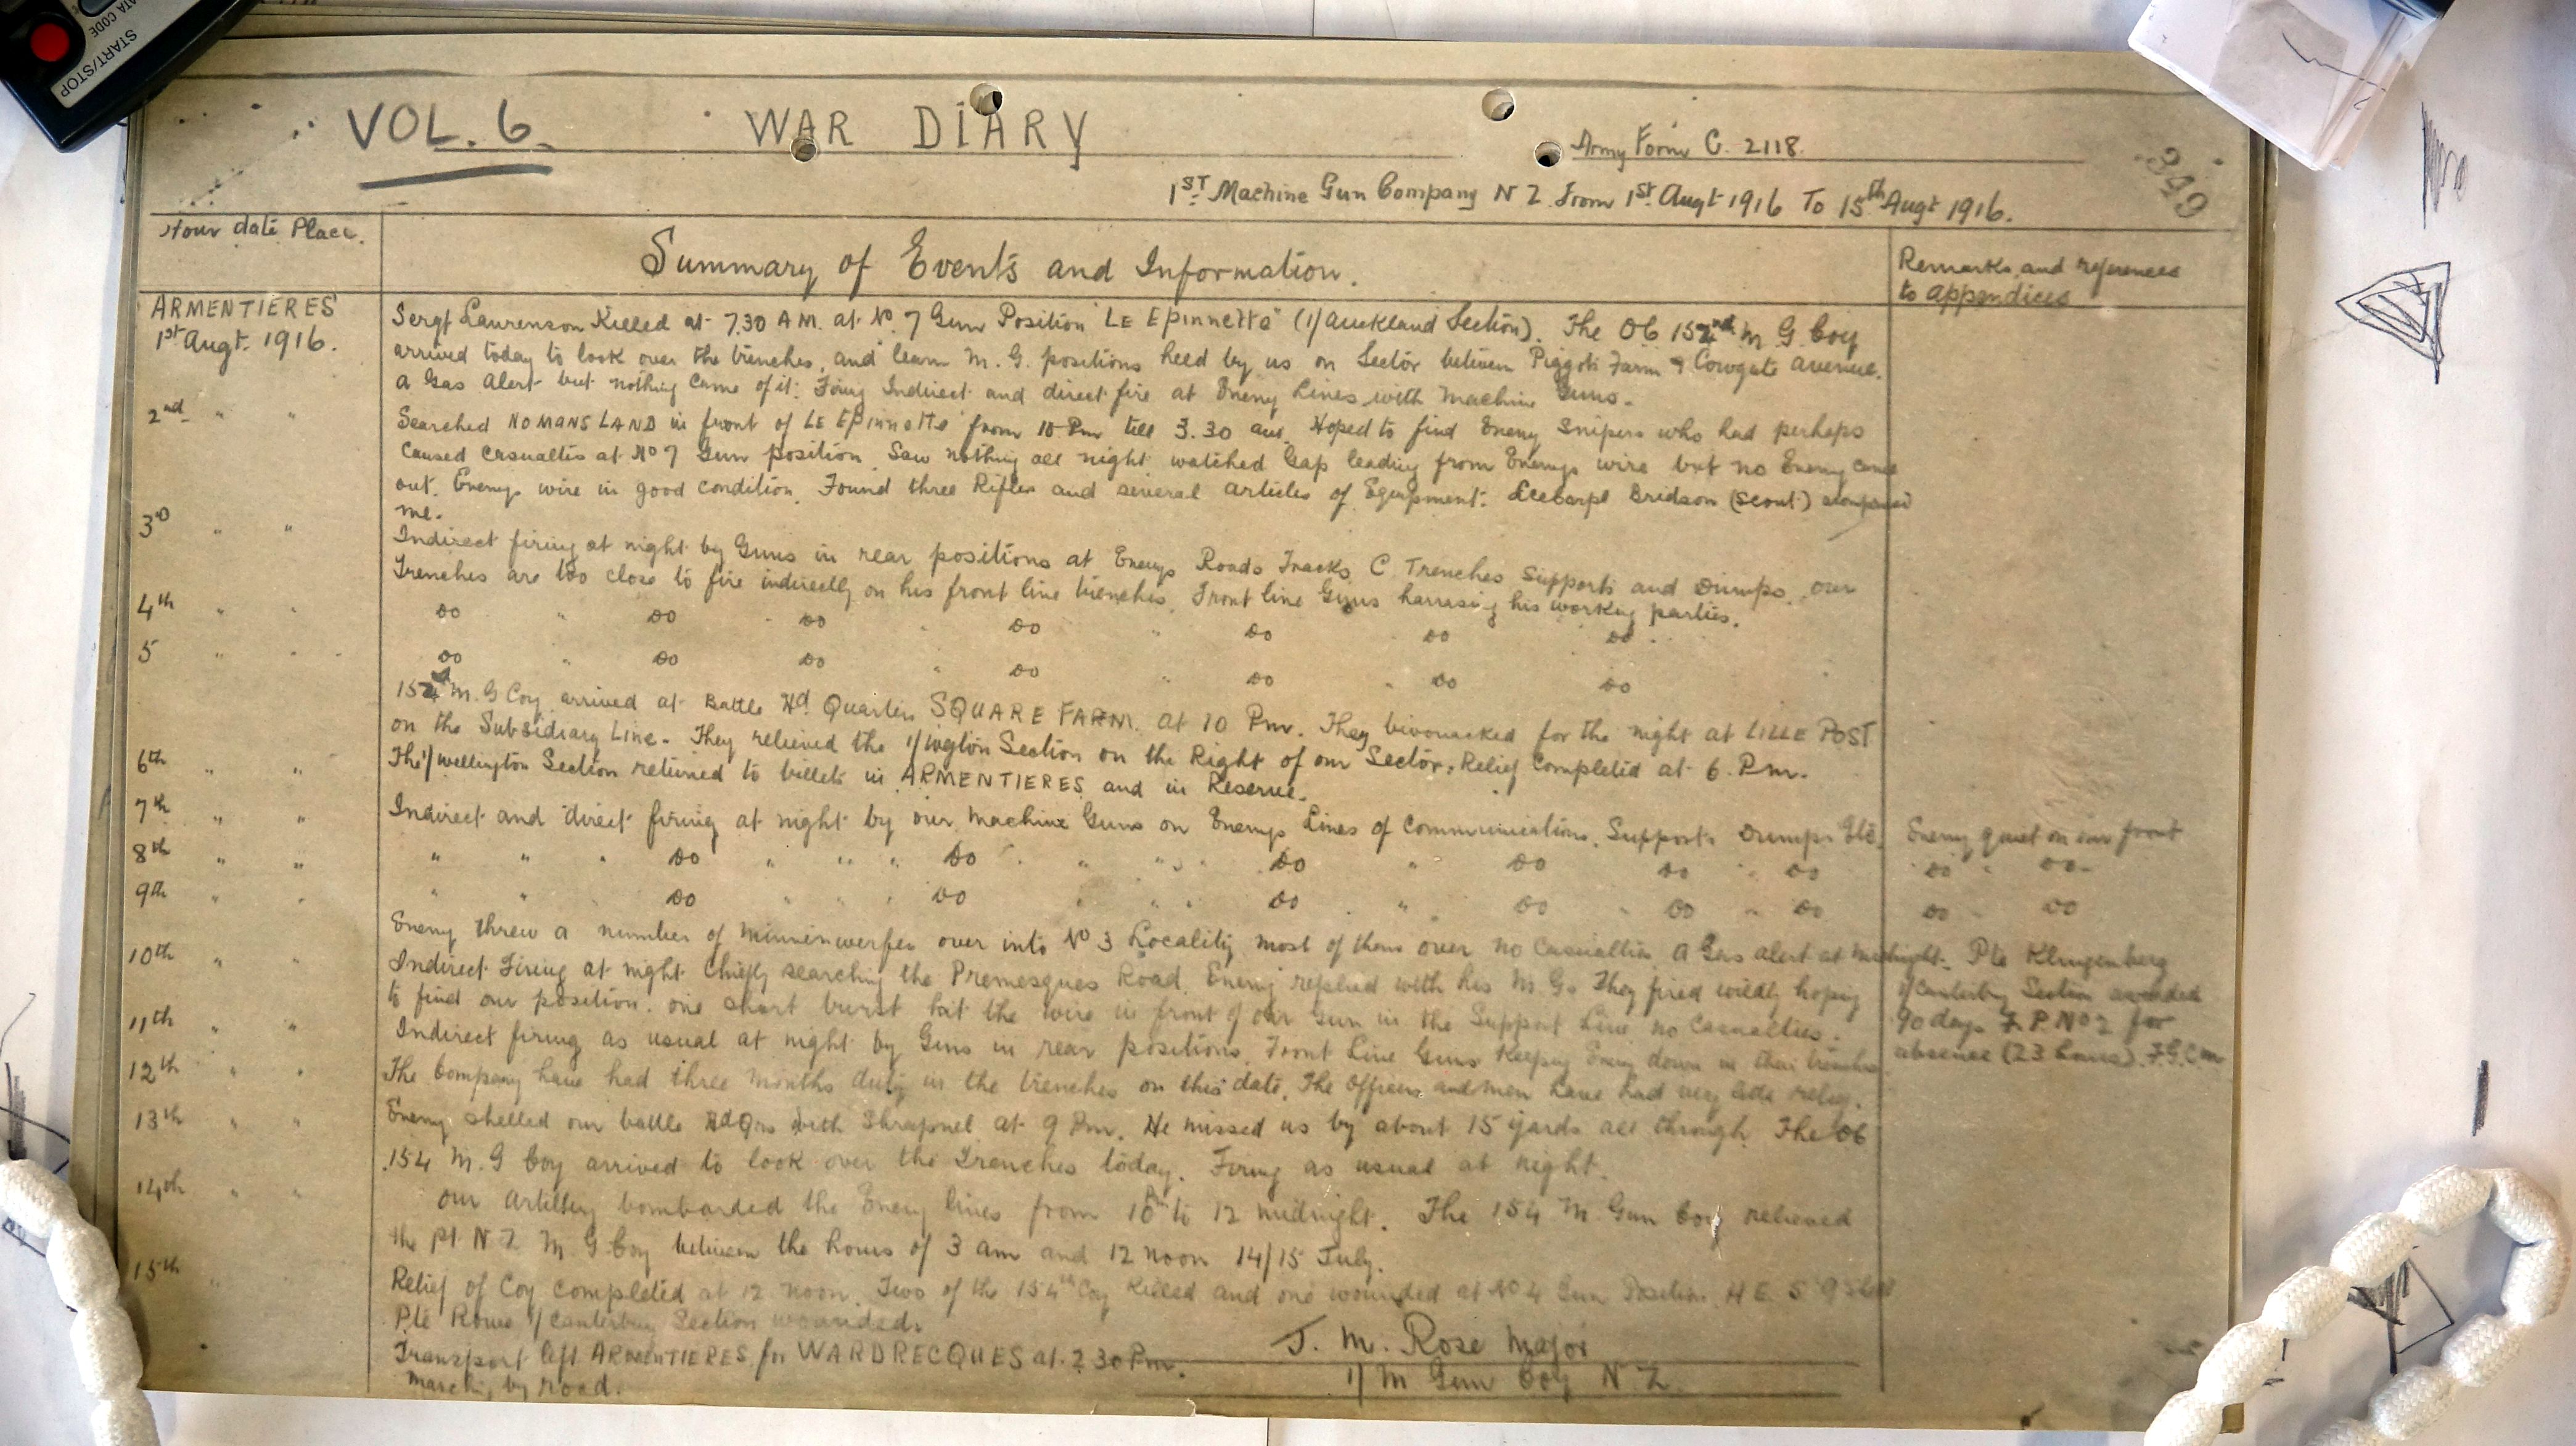 START/STOP
DATA CODE
VOL. 6.
WAR DIARY
Army Form C. 2118.
349
1ST Machine Gun Company N Z. From 1st Augt 1916 To 15th Augt 1916.
Hour date Place.
Summary of Events and Information.
Remarks and references
to appendices
ARMENTIERES
1st Augt. 1916.
Sergt Laurenson Killed at 7.30 A.M. at No. 7 Gun Position "LE Epinnette" (1/Auckland Section). The OC 152nd M G Coy
arrived today to look over the trenches, and learn M. G. positions held by us on Sector between Piggott Farm & Cowgate Avenue.
A Gas Alert but nothing came of it. Firing Indirect and direct fire at Enemy Lines with Machine Guns.
2nd " "
Searched NO MANS LAND in front of LE Epinnette from 10 Pm till 3.30 am. Hoped to find Enemy Snipers who had perhaps
caused casualties at No 7 Gun position. Saw nothing all night watched Gap leading from Enemys wire but no Enemy came
out. Enemys wire in good condition. Found three Rifles and several articles of Equipment. Lcecorpl Bridson (Scout)
me.
3rd " "
Indirect firing at night by Guns in rear positions at Enemys Roads Tracks, C. Trenches Supports and Dumps. our
Trenches are too close to fire indirectly on his front line trenches. Front line Guns harrasing his working parties.
4th " "
do " do " do " do " do do do
5 " "
do " do do " do do " do do
152nd M. G Coy arrived at Battle Hd Quarters SQUARE FARM. at 10 Pm. They bivouacked for the night at LILLE POST
on the Subsidiary Line. They relieved the 1/Wgton Section on the Right of our Sector. Relief completed at 6. Pm.
6th " "
The 1/Wellington Section returned to billets in ARMENTIERES and in Reserve.
7th " "
Indirect and direct firing at night by our Machine Guns on Enemys Lines of Communications. Supports Dumps Etc.
Enemy quiet on our front
8th " "
" " " do " " " do " " " do " do do " do
do " do
9th " "
" " do " " " do " " " do " do " do " do
do " do
Enemy threw a number of minnenwerfer over into No 3 Locality most of them over no Casualties. A Gas alert at midnight.
10th " "
Indirect Firing at night chiefly searching the Premesques Road. Enemy replied with his M. Gs They fired wildly hoping
to find our position. one short burst hit the wire in front of our Gun in the Support Line no Casualties.
Pte Klingenberg
1/Canterbury Section awarded
90 days F. P. No 2 for
absence (23 hours). F.G.C.M
11th " "
Indirect firing as usual at night by Guns in rear positions. Front Line Guns Keeping Enemy down in their trenches
12th " "
The Company have had three months duty in the trenches on this date. The Officers and men have had very little relief.
13th " "
Enemy shelled our battle Hd Qrs with Shrapnel at 9 Pm. He missed us by about 15 yards all through. The OC
154 M. G Coy arrived to look over the Trenches today. Firing as usual at night.
14th " "
our Artillery bombarded the Enemy lines from 10 Pm to 12 midnight. The 154 M. Gun Coy relieved
the 1st N Z M G Coy between the hours of 3 am and 12 noon 14/15 July.
15th "
Relief of Coy completed at 12 noon. Two of the 154th Coy Killed and one wounded at No 4 Gun Position. H E 5.9 Shell
Pte Rowe 1/Canterbury Section wounded.
Transport left ARMENTIERES for WARDRECQUES at 2 30 Pm.
Marching by road.
J. M. Rose Major
1/ M Gun Coy N. Z.